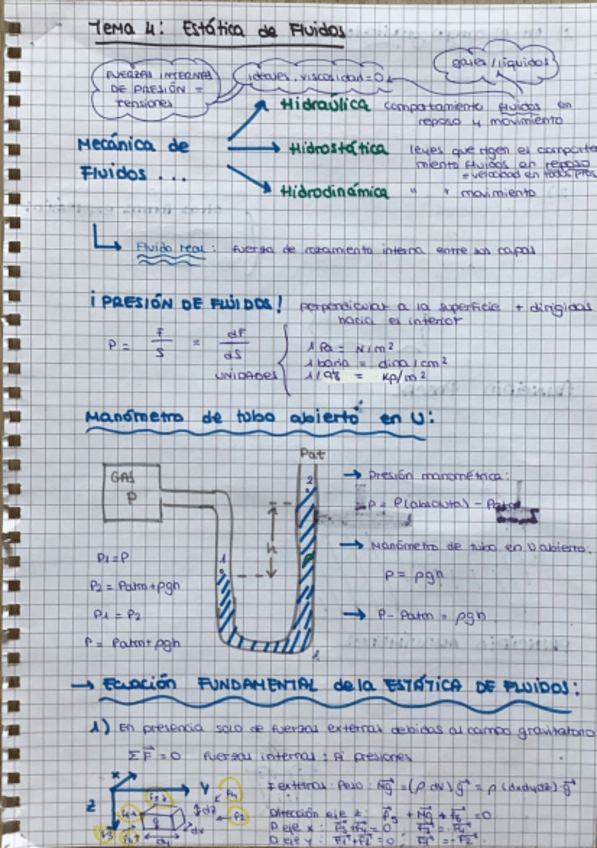 Tema 4: Estática de Fluidos
FUERZAS INTERNAS
DE PRESIÓN =
tensiones
ideales, viscosidad=0
gases/líquidos
Mecánica de
Fluidos ...
Hidraúlica comportamiento fluidos en
reposo y movimiento
Hidrostática leyes que rigen el comporta
miento fluidos en reposo
=velocidad en todos
Hidrodinámica " " movimiento
Fluido real: fuerza de rozamiento interna entre sus capas
¡PRESIÓN DE FLUIDOS! perpendicular a la superficie + dirigidas
hacia el interior
P = F/S = dF/dS
UNIDADES
1 Pa = N/m²
1 baria = dina/cm²
Kp/m²
Manómetro de tubo abierto en U:
GAS
P
Pat
2
h
1
P1=P
P2=Patm+ρgh
P1=P2
P=Patm+ρgh
→ Presión manométrica:
P=P(absoluta)-Patm
→ Manómetro de tubo en U abierto:
P=ρgh
→ P-Patm=ρgh
→ Ecuación FUNDAMENTAL de la ESTÁTICA DE FLUIDOS:
1) En presencia solo de fuerzas externas debidas al campo gravitatorio
ΣF=0 fuerzas internas: Pi presiones
X
Y
Z
Fexternas Peso: Mg=(ρ dv)g=ρ(dxdydz)g
Dirección eje z:
D eje x:
D eje y: